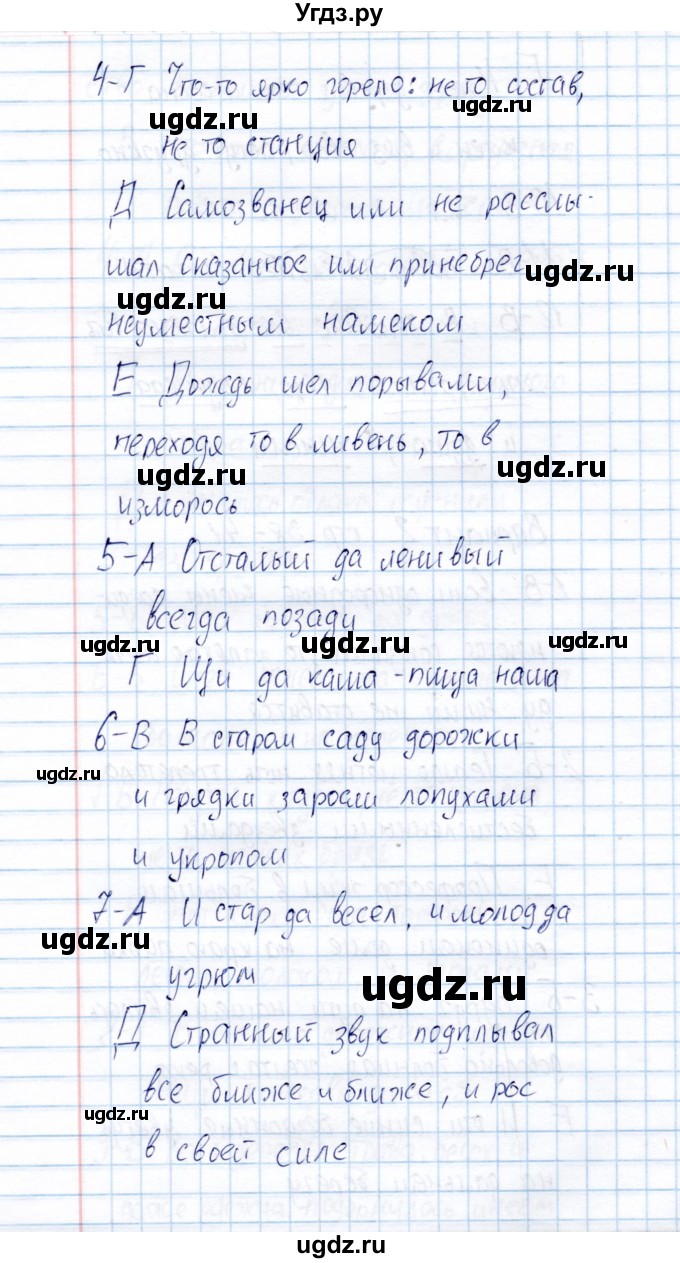 Угдз.ру
4-Г Что-то ярко горело: не то состав,
ugdz.ru
ugdz.ru
не то станция
Д Самозванец или не расслы-
шал сказанное или принебрег
ugdz.ru
ugdz.ru
неуместным намеком
Е Дождь шел порывами,
переходя то в ливень, то в
ugdz.ru
ugdz.ru
изморось
5-А Отсталый да ленивый
всегда позади
ugdz.ru
ugdz.ru
ugdz.ru
Г Щи да каша - пища наша
6-В В старом саду дорожки
ugdz.ru
и грядки заросли лопухами
и укропом
7-А И стар да весел, и молод да
ugdz.ru
угрюм
ugdz.ru
Д Странный звук подплывал
все ближе и ближе, и рос
ugdz.ru
в своей силе
ugdz.ru